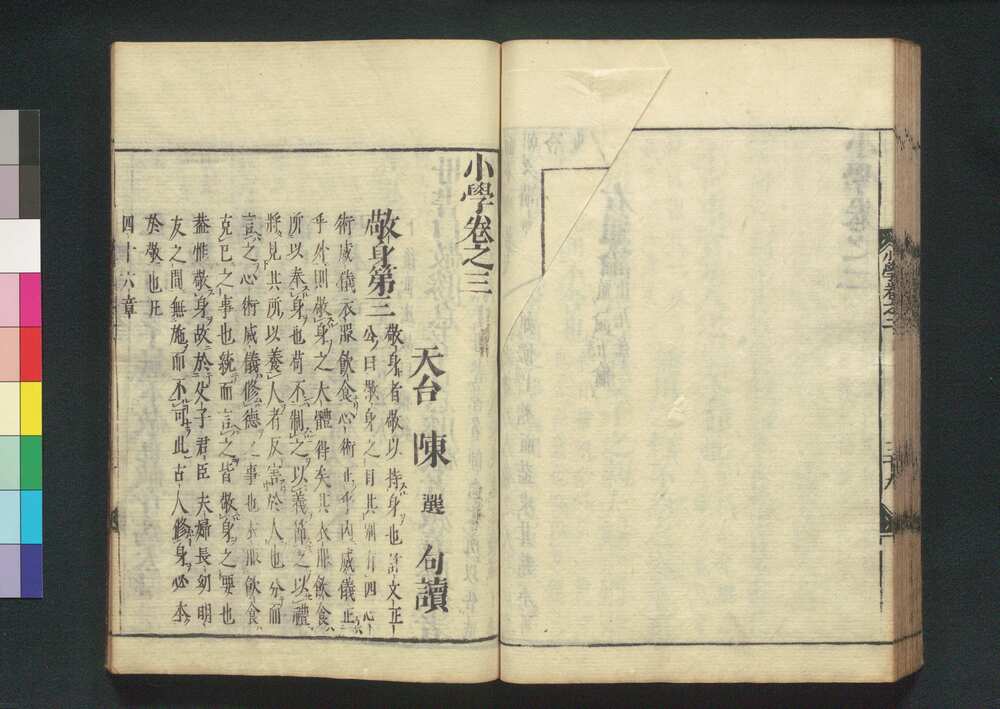 小學卷之二
三十九
小學卷之三
天台 陳 選 句讀
敬身第三
敬身者敬以持身也許文正
公曰敬身之目其別有四心
術威儀衣服飲食心術正乎內威儀正
乎外則敬身之大體得矣其衣服飲食
所以奉身也苟不制之以義節之以禮
將見其所以養人者反害於人也分而
言之心術威儀修德之事也衣服飲食
克己之事也統而言之皆敬身之要也
蓋惟敬身故於父子君臣夫婦長幼朋
友之間無施而不可此古人修身必本
於敬也凡
四十六章